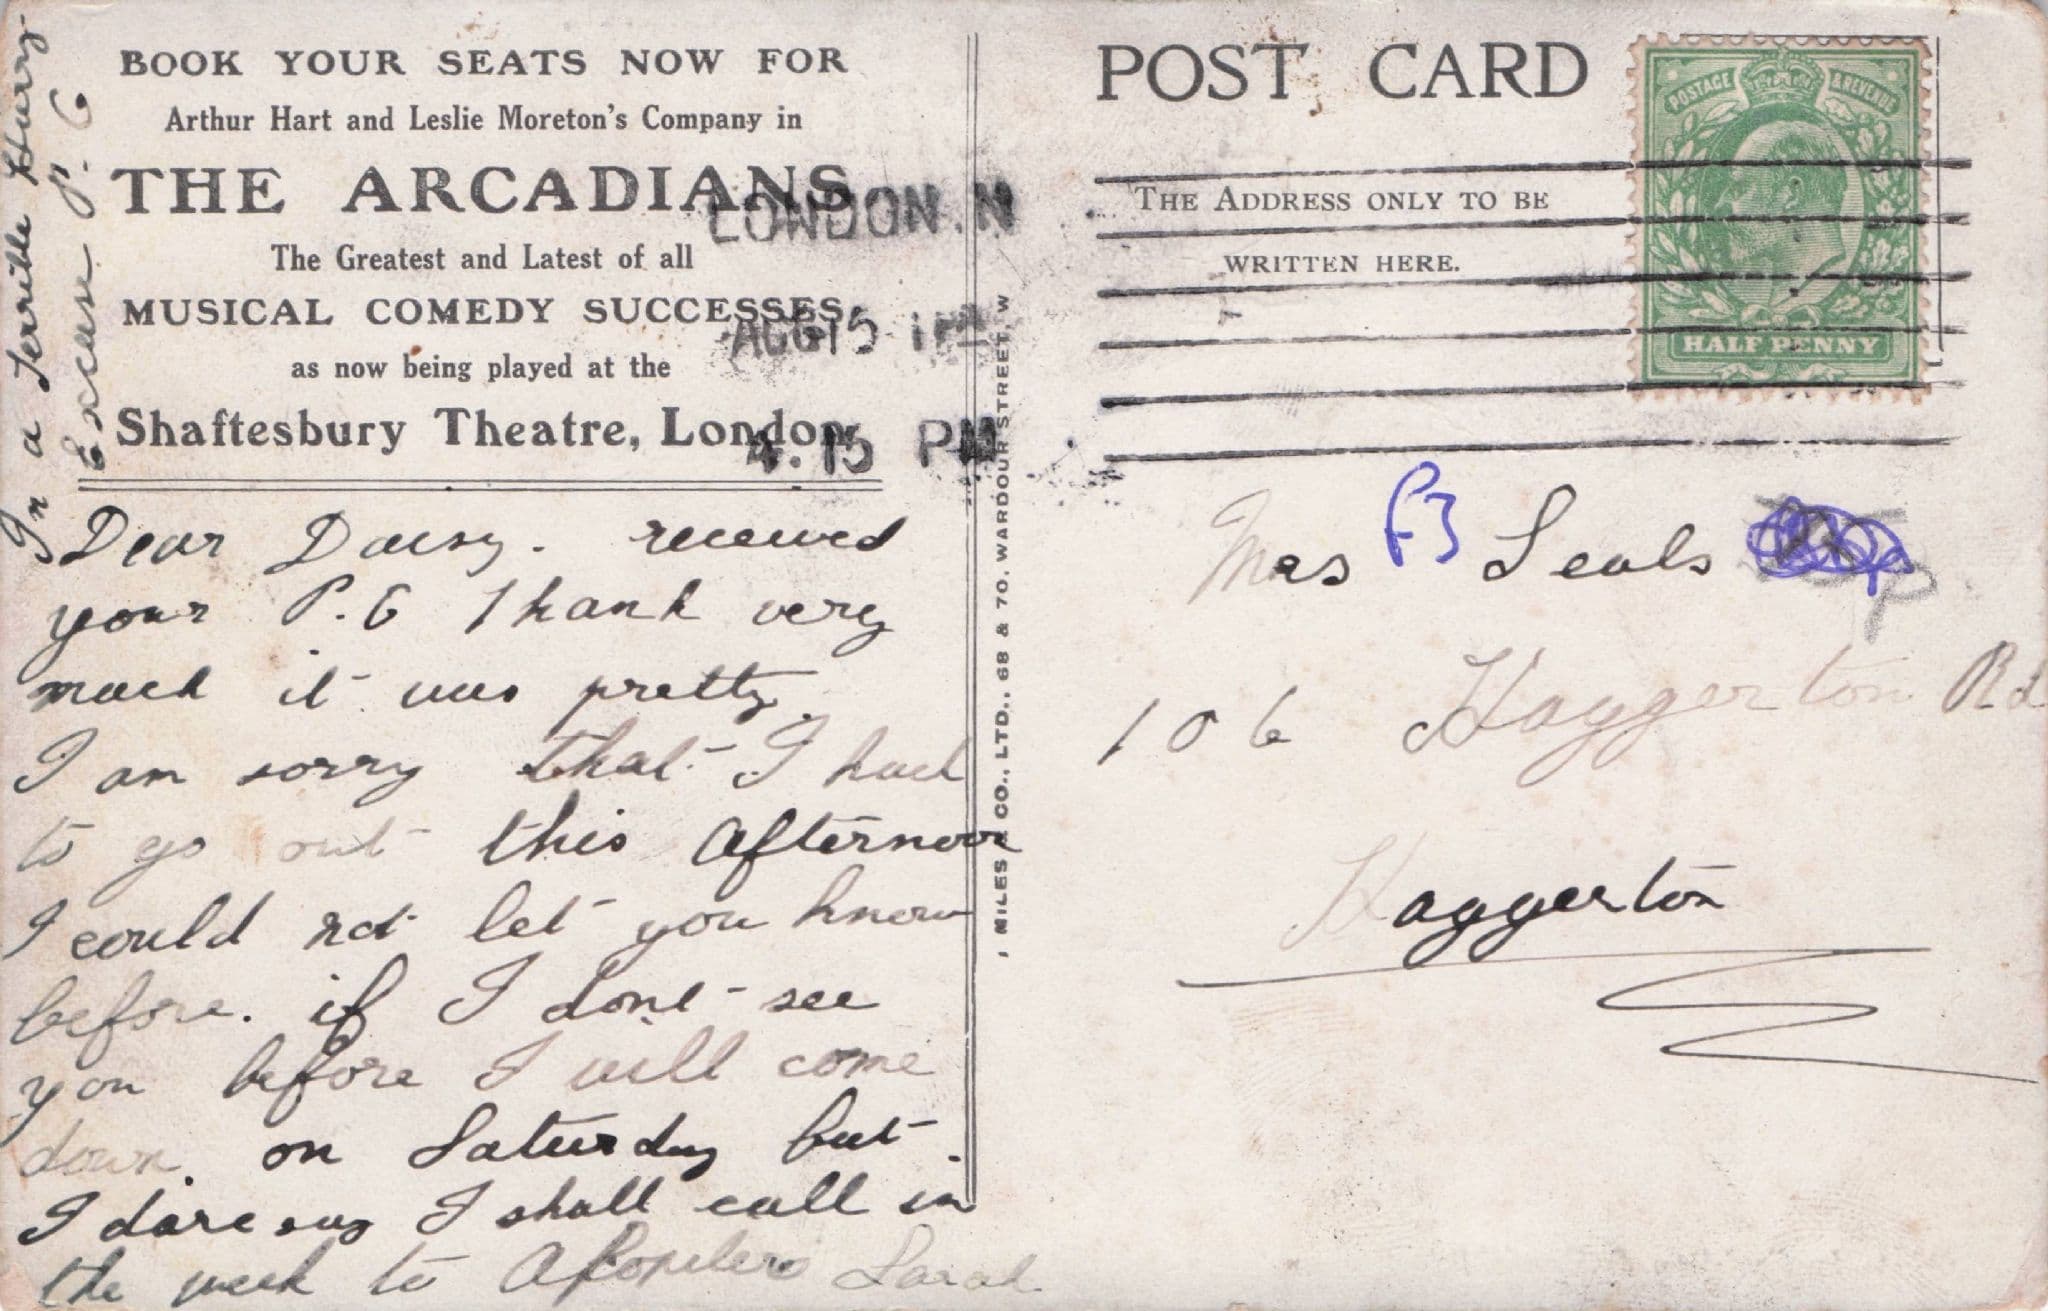 BOOK YOUR SEATS NOW FOR
Arthur Hart and Leslie Moreton's Company in
THE ARCADIANS
The Greatest and Latest of all
MUSICAL COMEDY SUCCESSES
as now being played at the
Shaftesbury Theatre, London.
In a Terrible Hurry
Excuse P. C
Dear Daisy. received
your P. C Thank very
much it was pretty.
I am sorry that I had
to go out this afternoon
I could not let you know
before. if I dont see
you before I will come
down on Saturday but
I dare say I shall call in
the week to Sarah
LONDON. N
AUG 15
4. 15 PM
MILES & CO., LTD., 68 & 70, WARDOUR STREET, W
POST CARD
THE ADDRESS ONLY TO BE
WRITTEN HERE.
POSTAGE & REVENUE
HALF PENNY
£3
Mrs Seals
106 Haggerton Rd
Haggerton